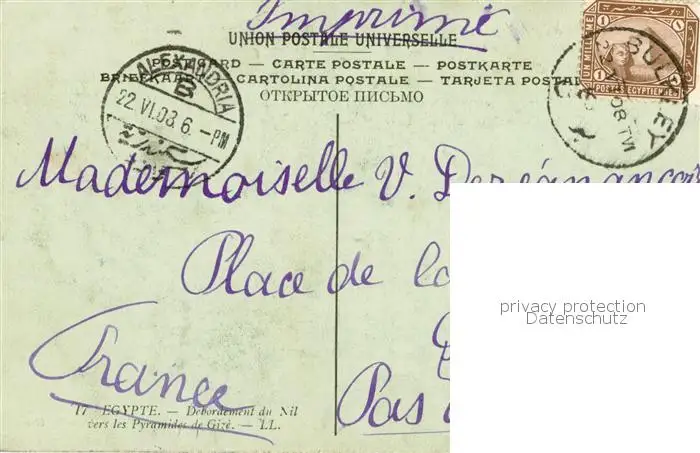 Imprimé
UNION POSTALE UNIVERSELLE
POSTCARD — CARTE POSTALE — POSTKARTE
BRIEFKAART CARTOLINA POSTALE — TARJETA POSTAL
ОТКРЫТОЕ ПИСЬМО
ALEXANDRIA
B
22.VI.08.6.-PM
UN MILLIEME
1 1
POSTES EGYPTIENNES
BULKELEY
Mademoiselle V.
Place de la
France
Pas
privacy protection
Datenschutz
17 EGYPTE. — Débordement du Nil
vers les Pyramides de Gizé. — LL.